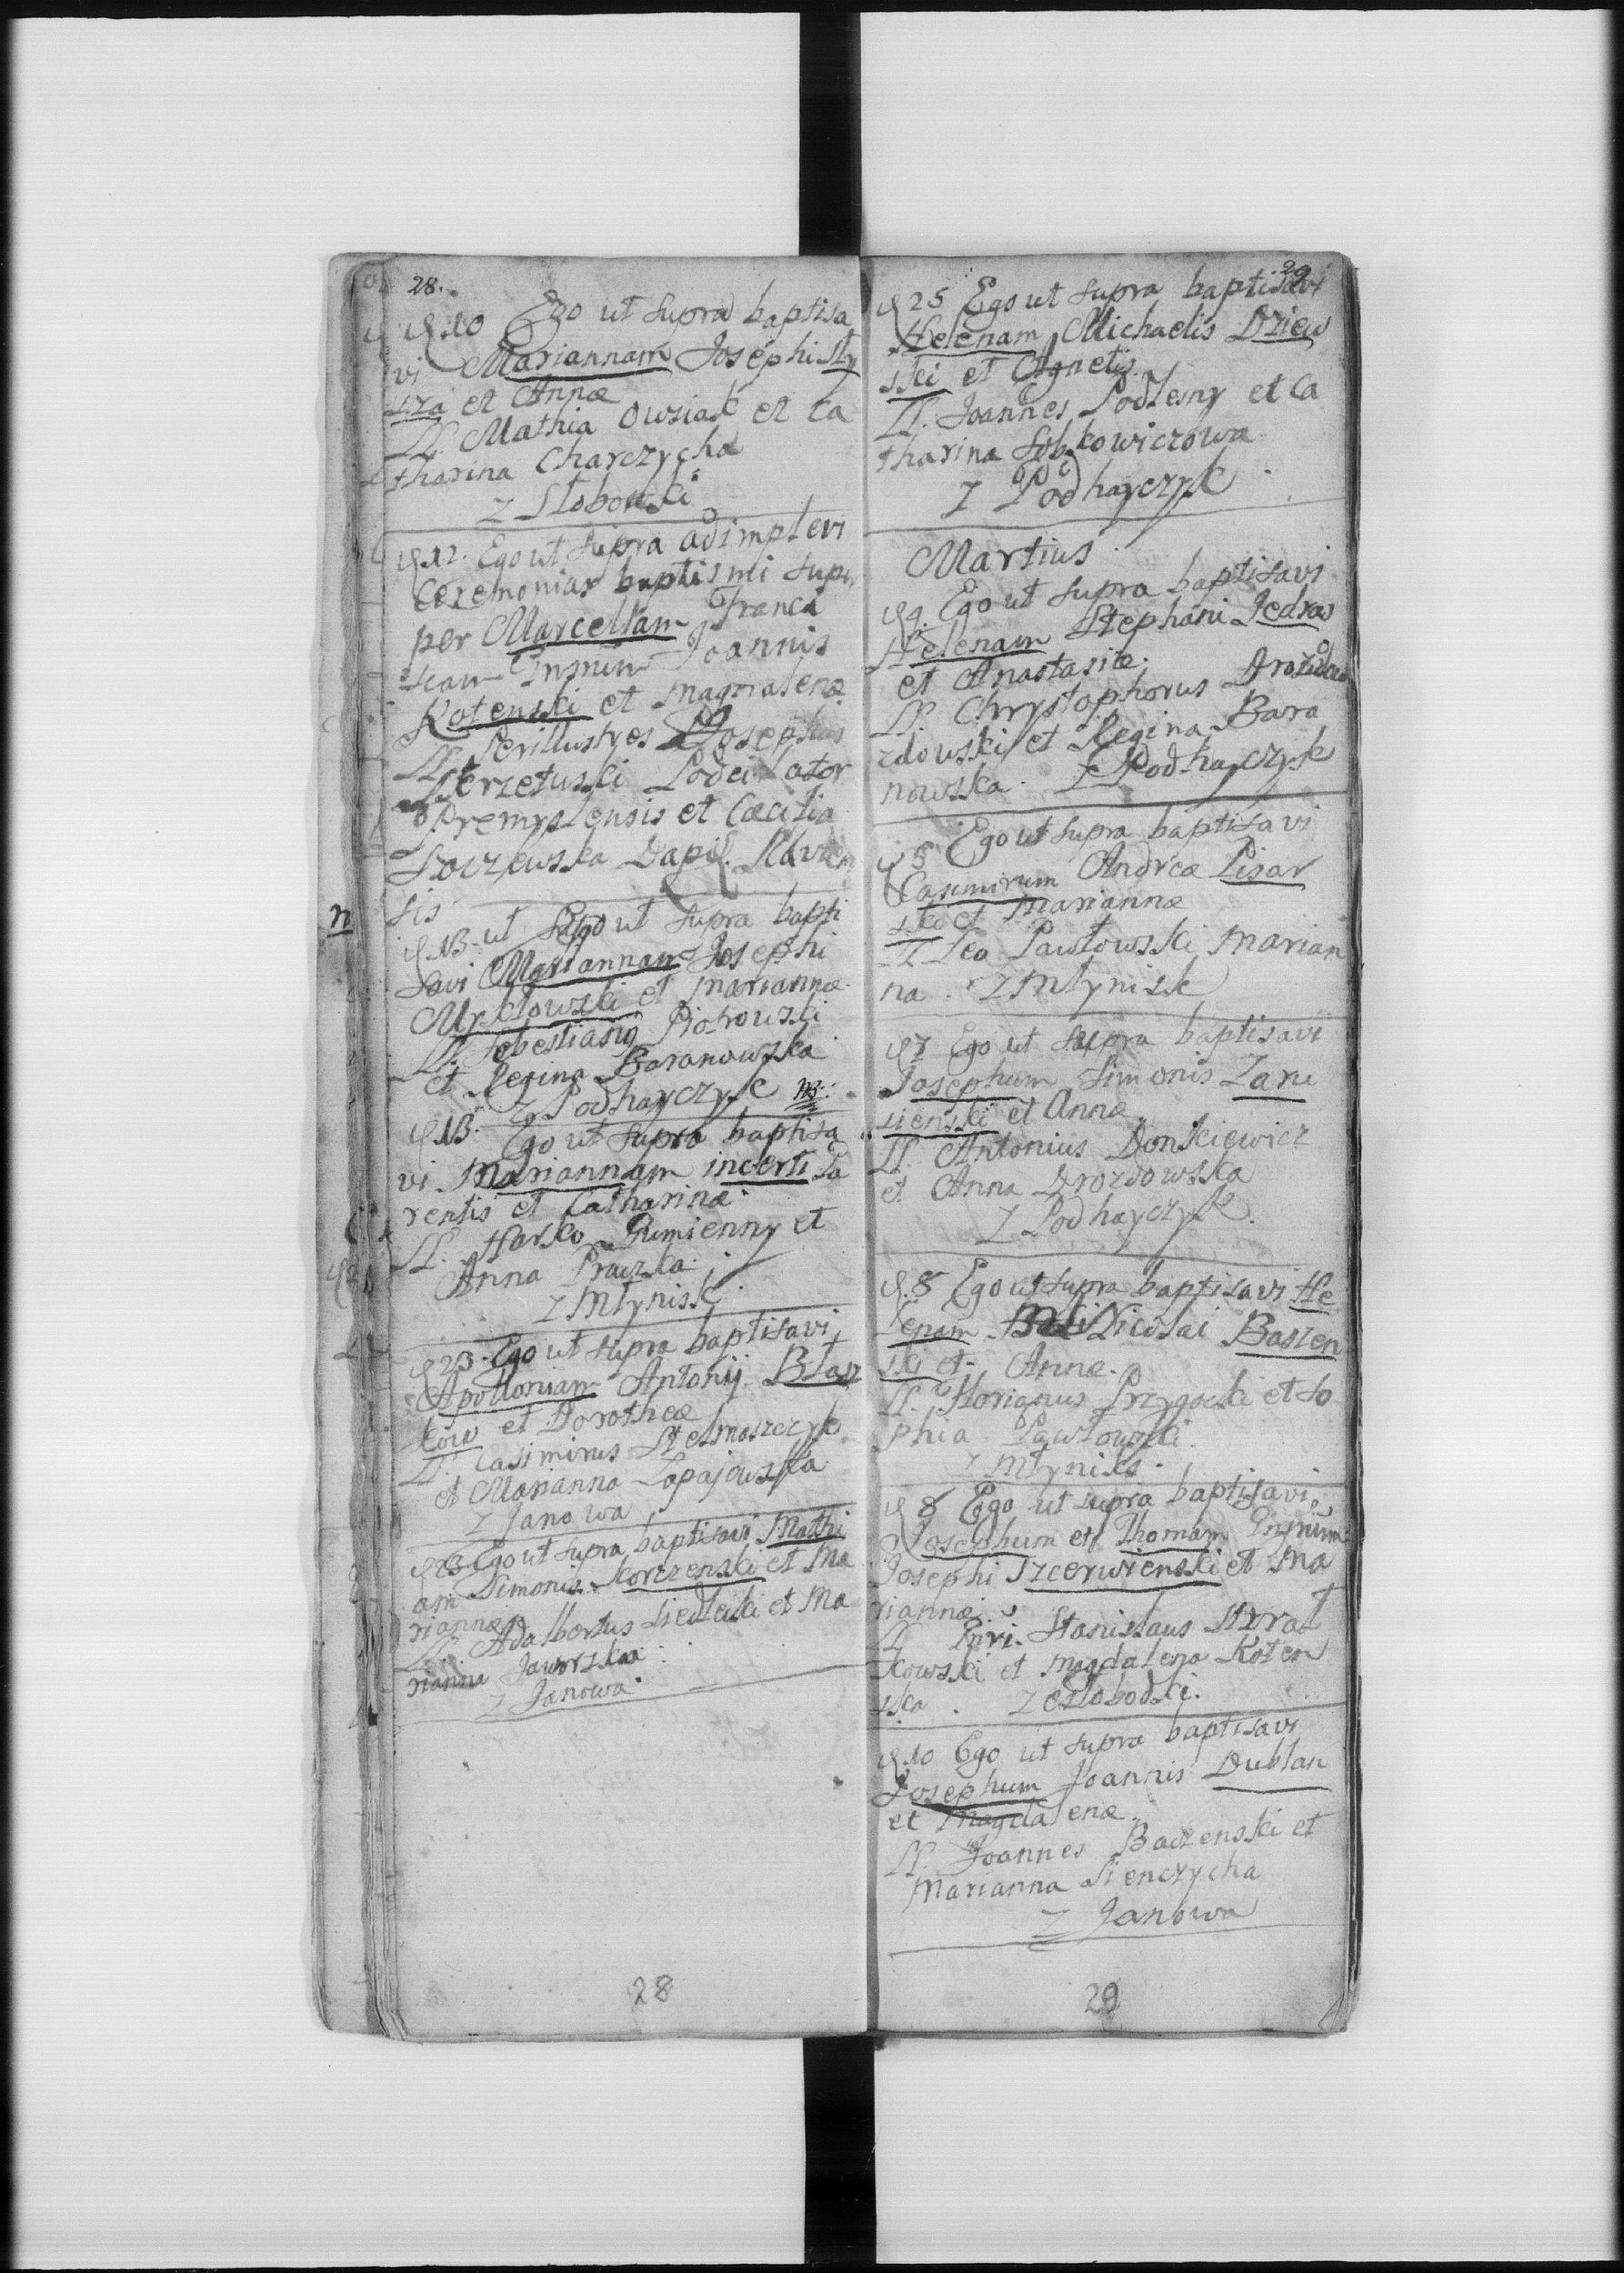 28.
10 Ego ut supra baptisa
vi Mariannam Josephi Ry
sza et Annæ
LL. Mathia Owsiak et Ca
tharina Charczycha
z Słobodki
12. Ego ut supra adimplevi
Ceremonias baptismi super
per Marcellam Franca
Joannis
Kotenski et Magdalenæ
LL. Perillustres Josephus
Podci Kator
Premyslensis et Cæcilia
Dapif.
sis
n
13. ut Ego ut supra bapti
savi Mariannam Josephi
Myslowski et Mariannæ
LL. Sebestiany Piotrowski
et Regina Baranowska
z Podhayczyk
13. Ego ut supra baptisa
vi Mariannam incerti Pa
rentis et Catharinæ.
LL. Harsko Gumienny et
Anna Praczka.
z Młynisk
23. Ego ut supra baptisavi
Apolloniam Antonij Błaz
kow et Dorotheæ
LL. Casimirus Stelmaszczyk
et Marianna Lopajowska
z Janowa
23 Ego ut supra baptisavi Mathi
am Simonis Korczenski et Ma
riannæ
LL. Adalbertus Siedlecki et Ma
rianna Jaworska
z Janowa
28
29
25 Ego ut supra baptisavi
Helenam Michaelis Dziew
ski et Agnetis.
LL. Joannes Podlesny et Ca
tharina Sobkowiczowa
z Podhayczyk
Martius
4. Ego ut supra baptisavi
Helenam Stephani Jedras
et Anastasiæ.
LL. Chrystophorus
zdowski et Regina Bara
nowska. z Podhayczyk
5 Ego ut supra baptisavi
Casimirum Andreæ Pisar
sko et Mariannæ
Leo Pawłowski Marian
na. z Młynisk
7 Ego ut supra baptisavi
Josephum Simonis Zaru
sienski et Annæ
LL. Antonius Donkiewicz
et Anna Drozdowska
z Podhayczyk.
8 Ego ut supra baptisavi He
lenam Nicolai Baszen
ski et Annæ.
LL. Florianus Przygocki et So
phia Pawłowski.
z Młynisk.
8 Ego ut supra baptisavi
Josephum et Thomam
Josephi Szczerwienski et Ma
riannæ
LL Stanislaus
kowski et Magdalena Koten
ska. z Słobodki.
10 Ego ut supra baptisavi
Josephum Joannis Dublan
et Magdalenæ.
LL. Joannes Baczenski et
Marianna Sienczycha
z Janowa
29